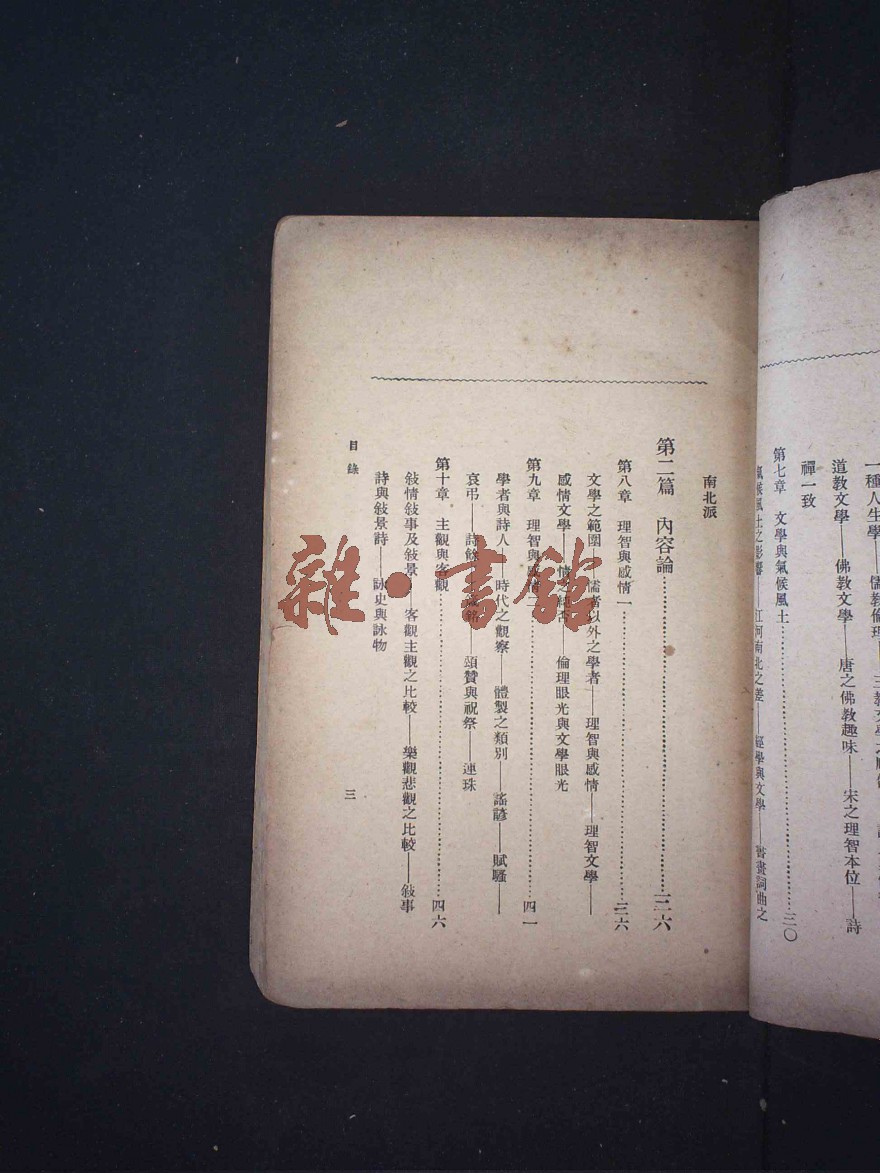 一種人生學——儒教倫理
道教文學——佛教文學——唐之佛教趣味——宋之理智本位——詩
禪一致
第七章 文學與氣候風土……三〇
氣候風土之影響——江河南北之差——經學與文學——書畫詞曲之
南北派
第二篇 內容論……三六
第八章 理智與感情一……三六
文學之範圍——儒者以外之學者——理智與感情——理智文學——
感情文學——情之——倫理眼光與文學眼光
第九章 理智與感情二……四一
學者與詩人——時代之觀察——體製之類別——謠諺——賦騷——
哀弔——詩餘——箴銘——頌贊與祝祭——連珠
第十章 主觀與客觀……四六
敍情敍事及敍景——客觀主觀之比較——樂觀悲觀之比較——敍事
詩與敍景詩——詠史與詠物
目錄
三
雜·書館